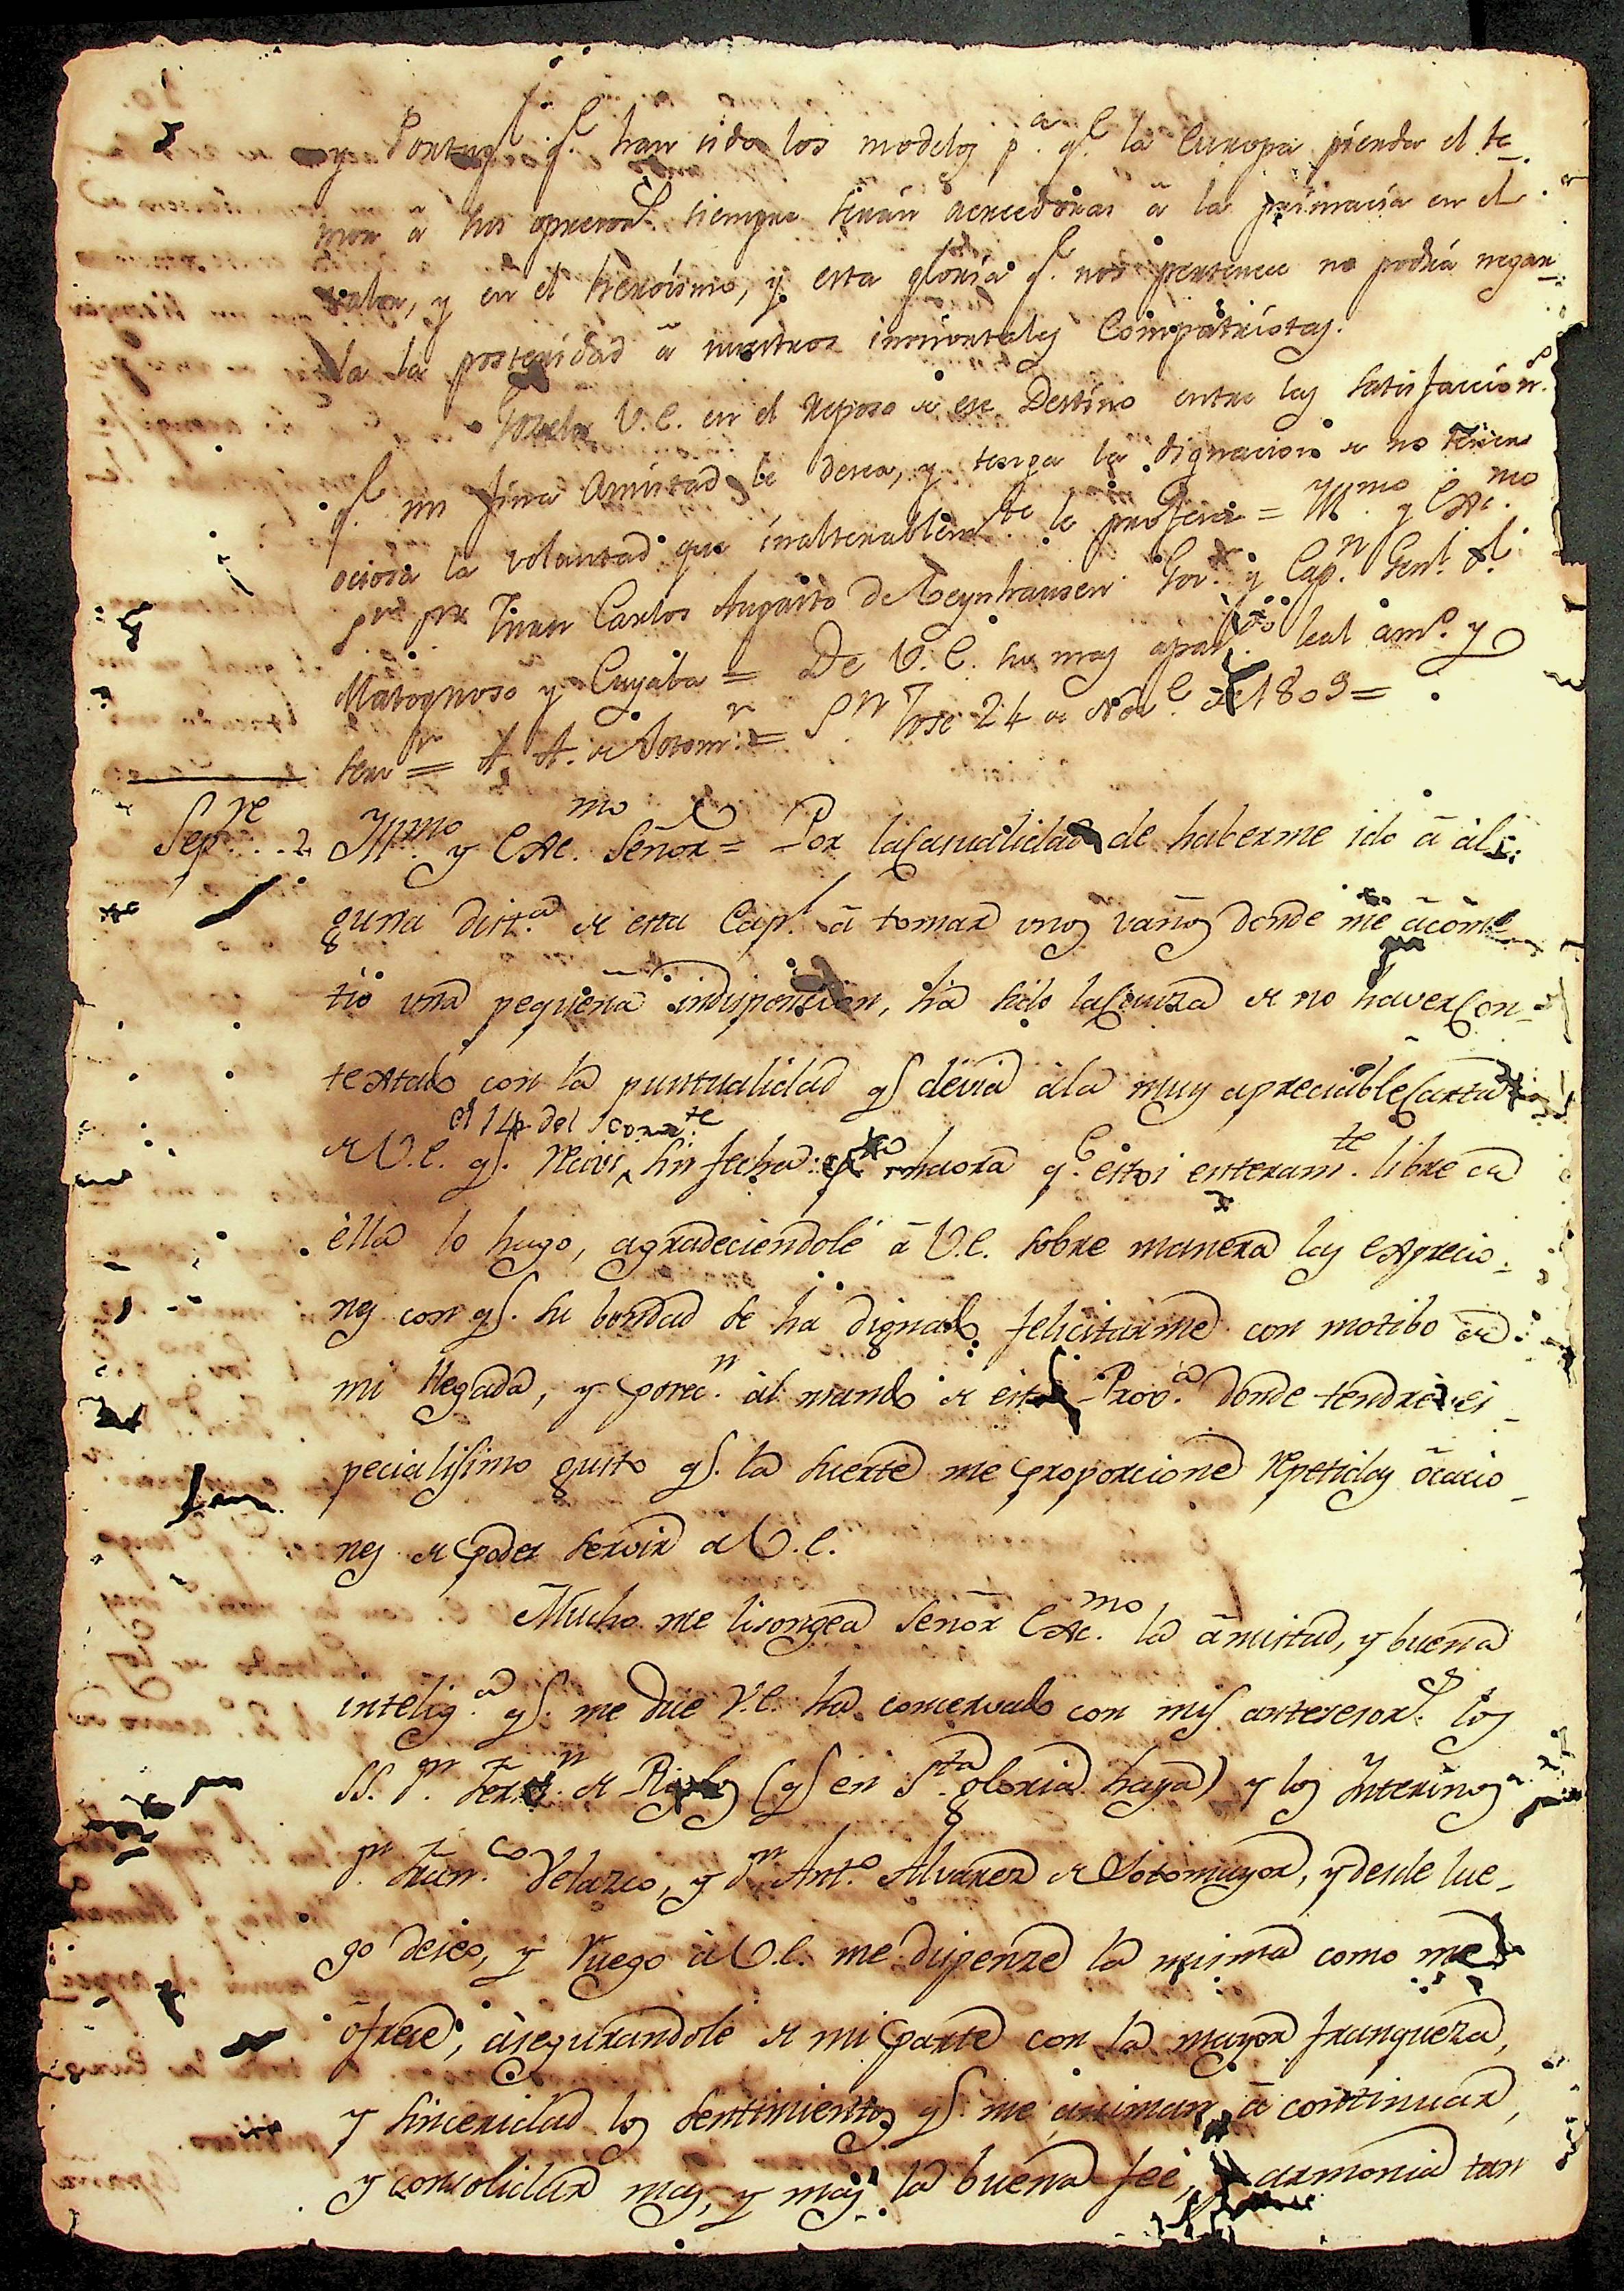 y Portug.l q.e han sido los modelos p.a q.e la Europa pierda el te-
mor á sus opresor.s siempre serán acrecedoras á la primacía en el
valor, y en el heroísmo, y esta gloria q.e nos pertenece no podrá negar-
la la posteridad á nuestros inmortales Compatriotas.
V.E. en el reposo de ese Destino entre las satisfaccion.s
q.e mi fina Amistad le desea, y tenga la dignacion de no tener
ociosa la voluntad que inalterablem.te le profesa = Yll.mo y Exc.mo
S.or D.n Juan Carlos Augusto D Oeynhausen Gov.r y Cap.n Gen.l d.l
Matogroso y Cuyaba = De V.E. su mas apas.do leal am.o y
serv.r = A. A. de Sotom.r = S.n Jose 24 de Nov.e de 1809 =
Sep.re 2. Yll.mo y Exc.mo Señor = Por la Casualidad de haberme ido á al-
guna dist.a de esta Cap.l á tomar unos vaños donde me acome-
tió una pequeña indisposicion, há sido la Cauza de no haver Con-
textado con la puntualidad q.e devia á la muy apreciable Carta
el 14 del corr.te
de V.E. q.e recivi sin fecha: ahora q.e estoi enteram.te libre de
ella lo hago, agradeciendolé á V.E. sobre manera las expresio-
nes con q.e su bondad se há dignado felicitarme con motibo de
mi llegada, y poses.n al mando de esta Prov.a donde tendre es-
pecialisimo gusto q.e la suerte me proporcione repetidas ócacio-
nes de poder servir a V.E.
Mucho me lisongea Señor Exc.mo la ámistad, y buena
intelig.a q.e me dice V.E. ha conservado con mis antesesor.s los
SS. D.n Fer.n de Riglos (q.e en S.ta gloria haya) y los Interinos
D.n Fran.co Velazco, y D.n Ant.o Alvarez de Sotomayor, y desde lue-
go deseo, y ruego á V.E. me dispenze la misma como me
ófrece, ásegurandole de mi parte con la mayor franqueza,
y sinceridad los sentimientos q.e me animan á continuar,
y consolidar mas, y mas la buena fee, y armonia tan